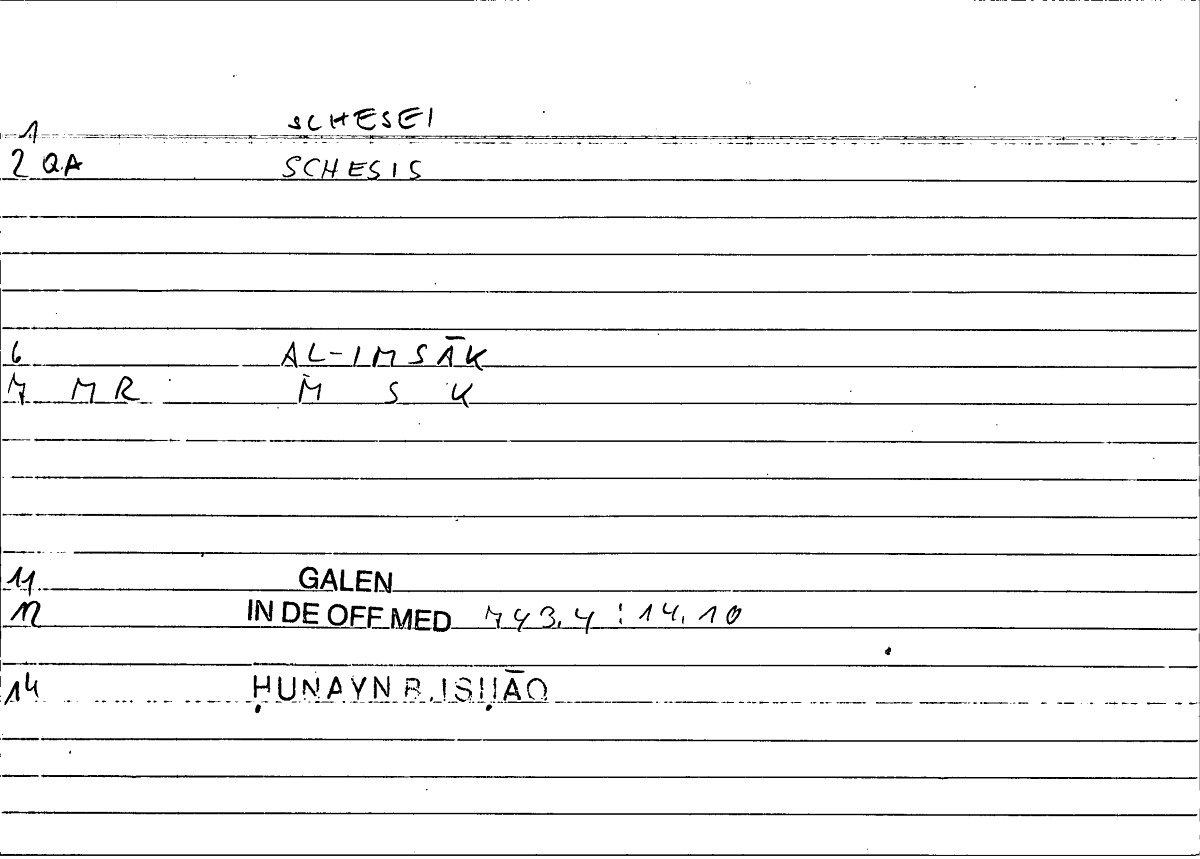 1 SCHESEI
2 QA SCHESIS
6 AL-IMSĀK
7 MR M S K
11 GALEN
12 IN DE OFF MED 743.4 : 14.10
14 ḤUNAYN B. ISḤĀQ